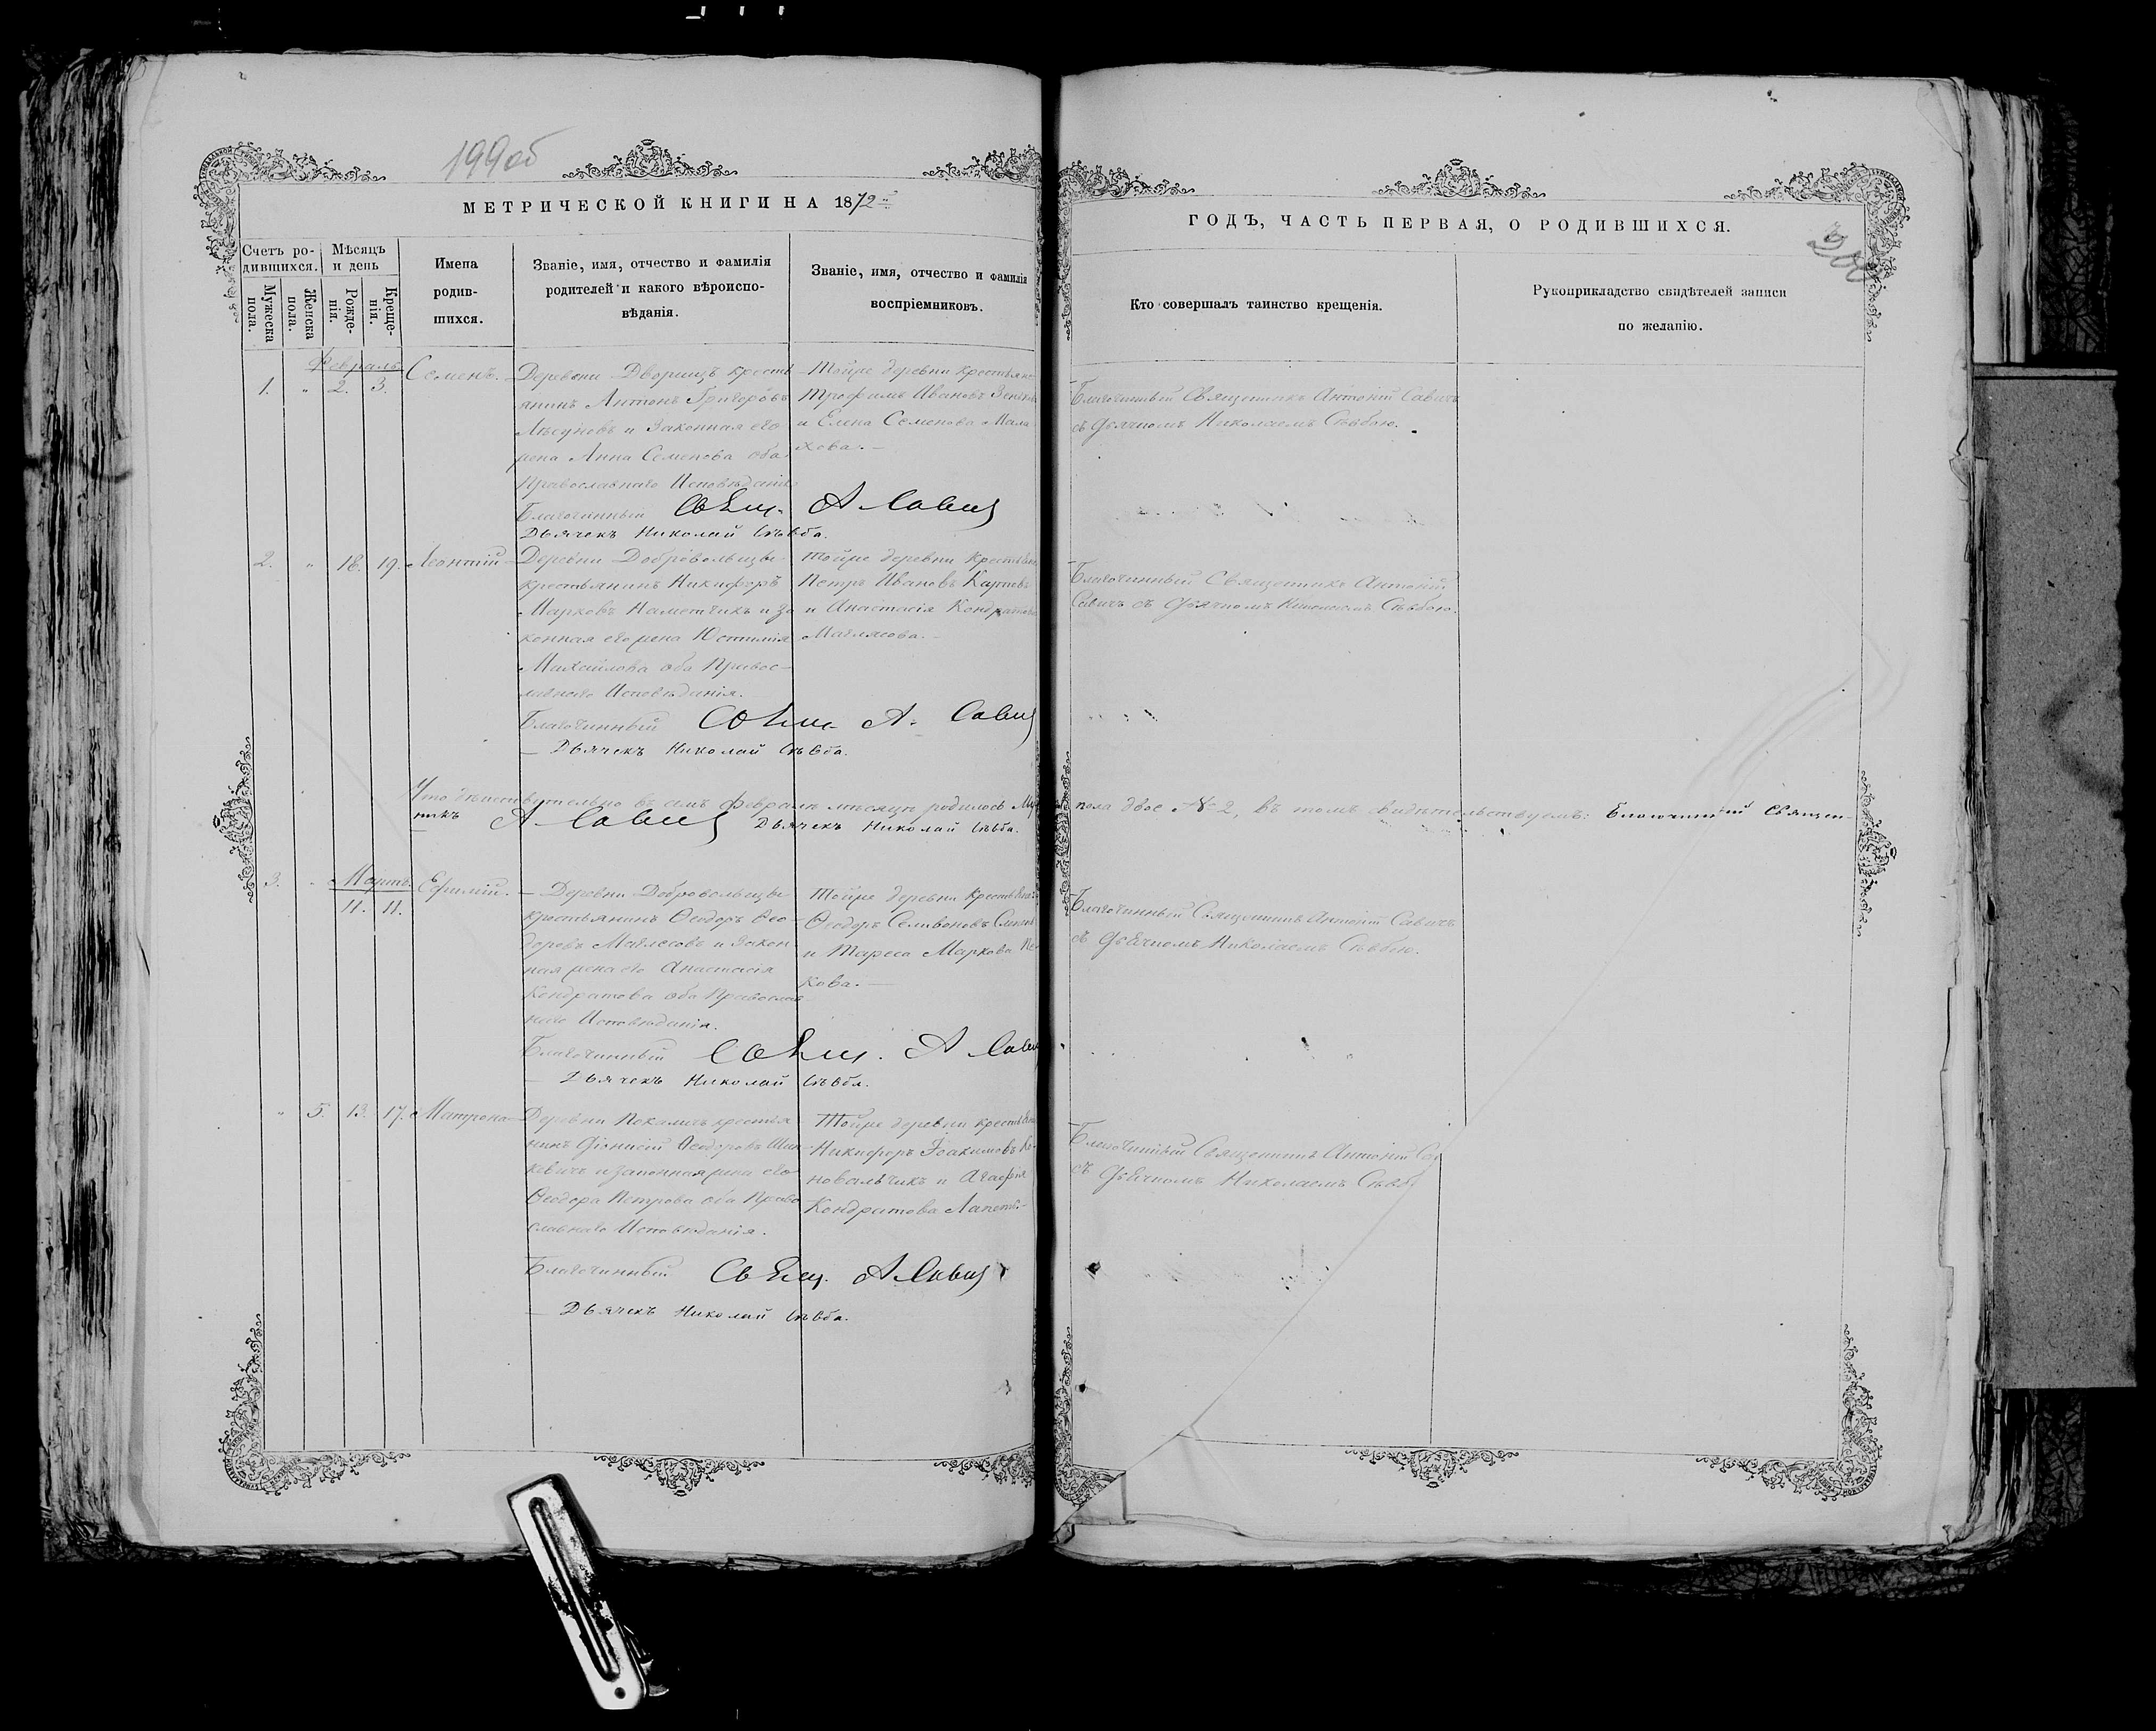 199об
МЕТРИЧЕСКОЙ КНИГИ НА 1872
ГОДЪ, ЧАСТЬ ПЕРВАЯ, О РОДИВШИХСЯ.
200
Счетъ ро-
дившихся.
Мѣсяцъ
и день
Мужеска
пола.
Женска
пола.
Рожде-
нія.
Креще-
нія.
Имена
родив-
шихся.
Званіе, имя, отчество и фамилія
родителей и какого вѣроиспо-
вѣданія.
Званіе, имя, отчество и фамилія
воспріемниковъ.
Кто совершалъ таинство крещенія.
Рукоприкладство свидѣтелей записи
по желанію.
Февраль
1. " 2. 3.
Семенъ.
Деревни Дворищъ кресть
янинъ Антонъ Григоровъ
и Законная его
жена Анна Семенова оба
Православнаго Исповѣданія
Благочинный Свящ. А Савич
Дьячекъ Николай Сѣвба.
Тойже деревни крестьян
Трофимъ Ивановъ
и Елена Семенова Мала
хова.
Благочинный Священникъ Антоній Савичъ
съ Дьячкомъ Николаемъ Сѣвбою.
2. " 18. 19.
Леонтій
Деревни Добровольщы
крестьянинъ Никифоръ
Марковъ Наметчикъ и За
конная его жена Юстинія
Михайлова оба Правос-
лавнаго Исповѣданія.
Благочинный Свящ. А. Савич
Дьячекъ Николай Сѣвба.
Тойже деревни крестьян
Петръ Ивановъ
и Анастасія Кондратова
Маглясова.
Благочинный Священникъ Антоній
Савичъ съ Дьячкомъ Николаемъ Сѣвбою.
Что дѣйствительно въ семъ Февралѣ мѣсяцѣ родилось Муж
пола двое № 2, въ томъ свидѣтельствуемъ: Благочинный Священ-
никъ А Савич Дьячекъ Николай Сѣвба.
Мартъ
3. " 11. 11.
Евфимій.
Деревни Добровольщы
крестьянинъ Ѳеодоръ Ѳео-
доровъ Маглясовъ и Закон
ная жена его Анастасія
Кондратова оба Православ
наго Исповѣданія.
Благочинный Свящ. А Савич
Дьячекъ Николай Сѣвба.
Тойже деревни крестьян
Ѳеодоръ Селивоновъ
и Тереса Маркова
кова.
Благочинный Священникъ Антоній Савичъ
съ Дьячкомъ Николаемъ Сѣвбою.
" 5. 13. 17.
Матрона
Деревни крестья
нинъ Діонисій Ѳеодоровъ
кевичъ и законная жена его
Ѳеодора Петрова оба Право
славнаго Исповѣданія.
Благочинный Свящ. А Савич
Дьячекъ Николай Сѣвба.
Тойже деревни крестьян
Никифоръ Іоакимовъ Ко-
новальчикъ и Агафія
Кондратова
Благочинный Священникъ Антоній
съ Дьячкомъ Николаемъ